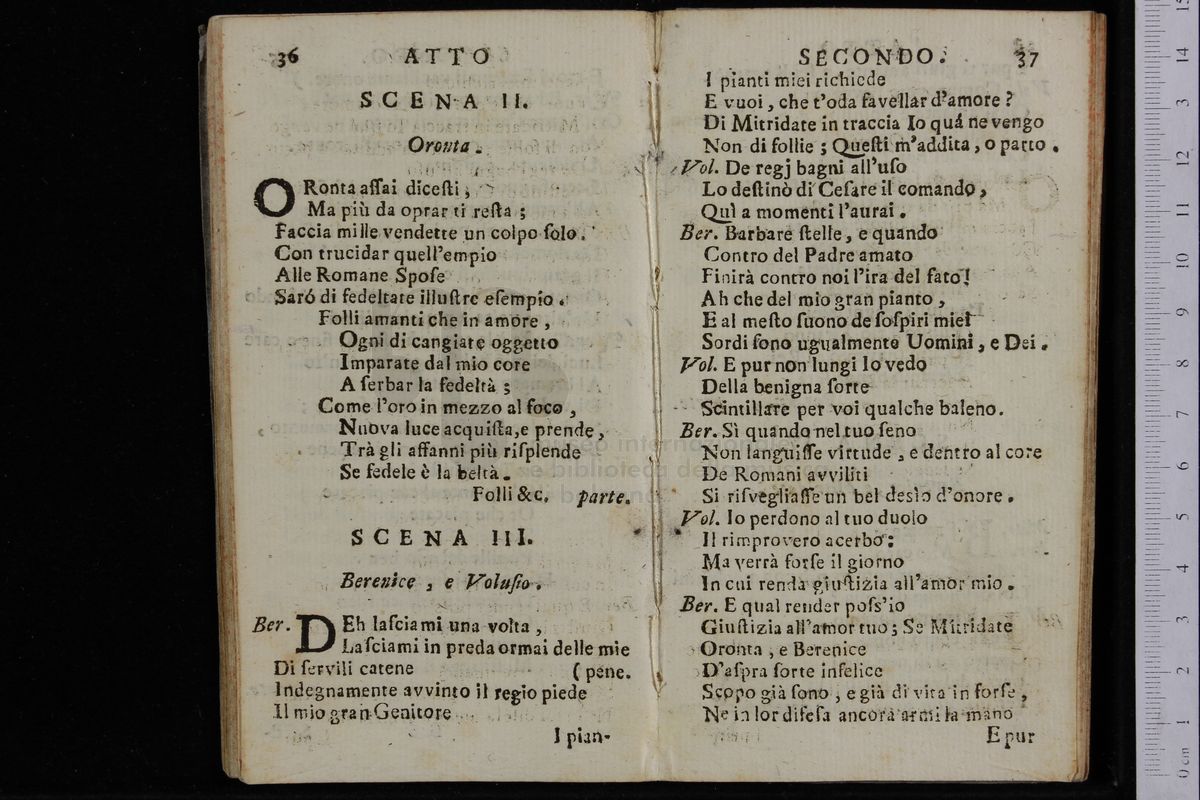 36 ATTO
SCENA II.
Oronta.
ORonta aſſai diceſti,
Ma più da oprar ti reſta;
Faccia mille vendette un colpo ſolo.
Con trucidar quell'empio
Alle Romane Spoſe
Saró di fedeltate illuſtre eſempio.
Folli amanti che in amore,
Ogni di cangiate oggetto
Imparate dal mio core
A ſerbar la fedeltà;
Come l'oro in mezzo al foco,
Nuova luce acquiſta,e prende,
Trà gli affanni più riſplende
Se fedele è la beltà.
Folli &c. parte.
SCENA III.
Berenice, e Voluſio.
Ber. DEh laſciami una volta,
Laſciami in preda ormai delle mie
Di ſervili catene (pene.
Indegnamente avvinto il regio piede
Il mio gran Genitore
I pian-
SECONDO. 37
I pianti miei richiede
E vuoi, che t'oda favellar d'amore?
Di Mitridate in traccia Io quá ne vengo
Non di follie; Queſti m'addita, o parto.
Vol. De regj bagni all'uſo
Lo deſtinò di Ceſare il comando,
Quì a momenti l'aurai.
Ber. Barbare ſtelle, e quando
Contro del Padre amato
Finirà contro noi l'ira del fato!
Ah che del mio gran pianto,
E al meſto ſuono de ſoſpiri miei
Sordi ſono ugualmente Uomini, e Dei.
Vol. E pur non lungi Io vedo
Della benigna ſorte
Scintillare per voi qualche baleno.
Ber. Sì quando nel tuo ſeno
Non languiſſe virtude, e dentro al core
De Romani avviliti
Si riſvegliaſſe un bel desìo d'onore.
Vol. Io perdono al tuo duolo
Il rimprovero acerbo:
Ma verrà forſe il giorno
In cui renda giuſtizia all'amor mio.
Ber. E qual render poſs'io
Giuſtizia all'amor tuo; Se Mitridate
Oronta, e Berenice
D'aſpra ſorte infelice
Scopo già ſono, e già di vita in forſe,
Ne in lor difeſa ancora armi la mano
E pur